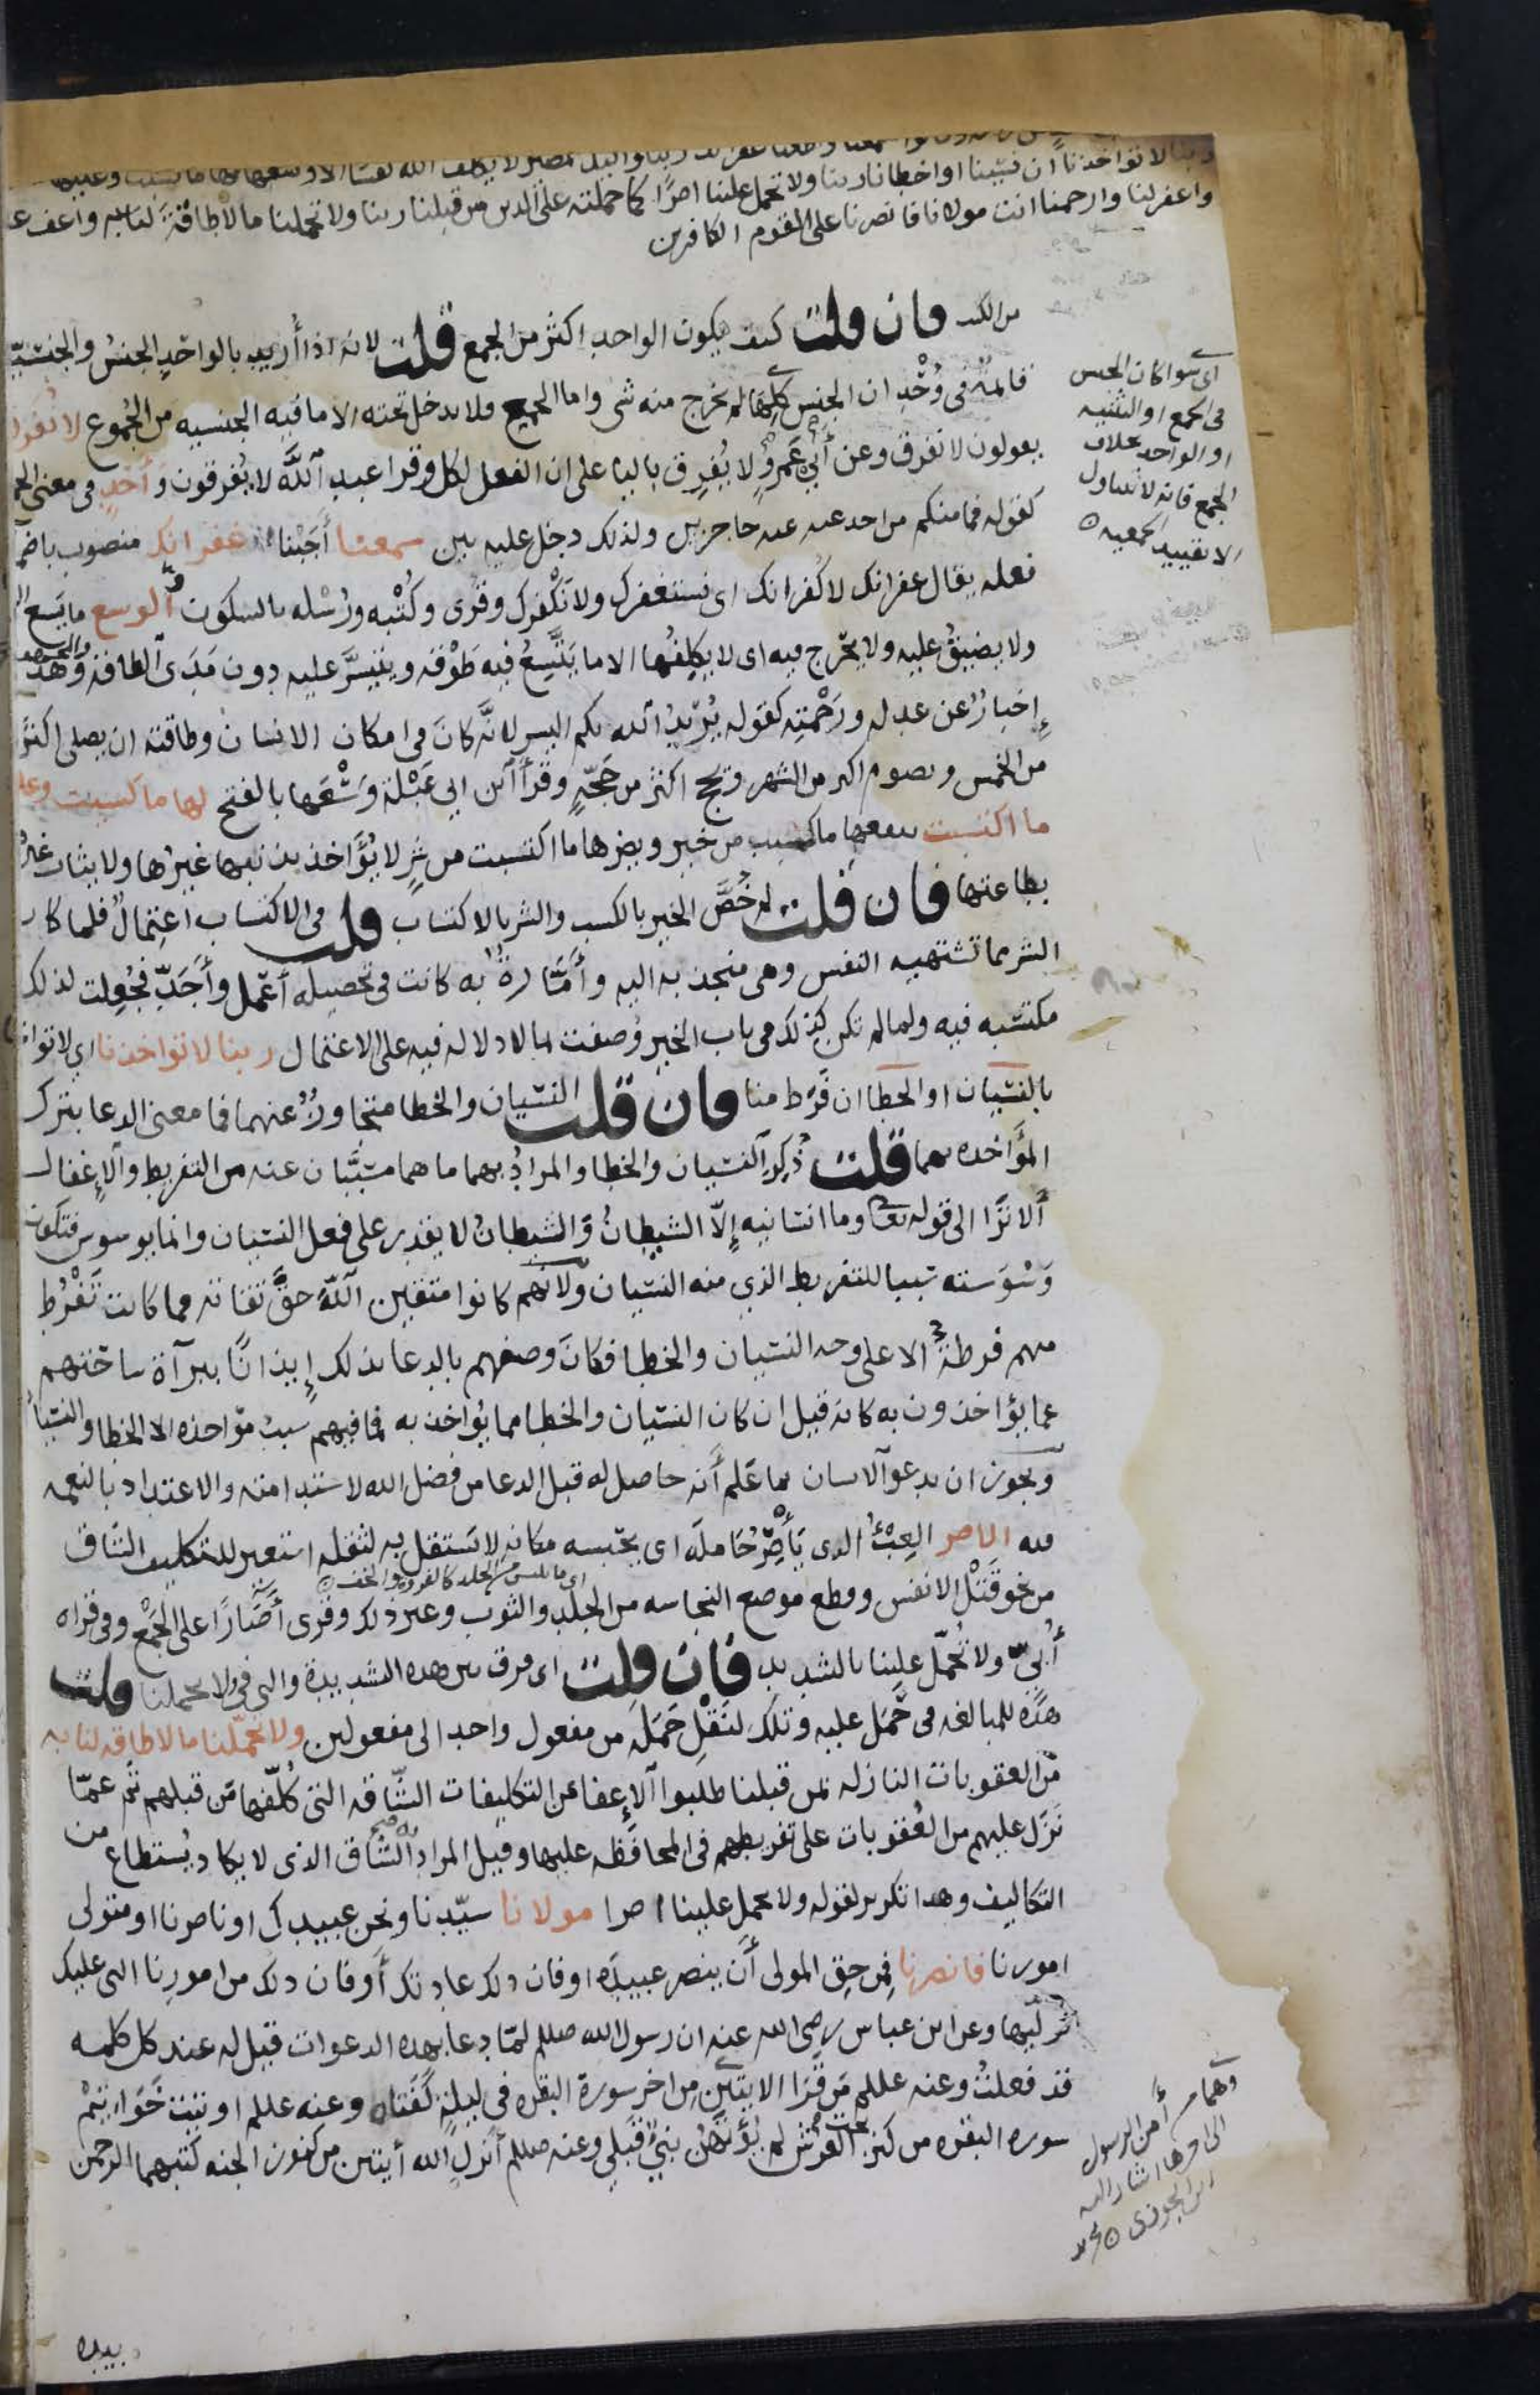 ربنا لا تواخذنا ان نسينا او اخطانا ربنا ولا تحمل علينا اصرًا كما حملته على الذين من قبلنا ربنا ولا تحملنا ما لا طاقة لنا به واعف ع
واغفر لنا وارحمنا انت مولانا فانصرنا على القوم الكافرين
من الكتب فان قلت كيف يكون الواحد اكثر من الجمع قلت لانه اذا أُريد بالواحد الجنسُ والجنسيّة
قائمةٌ فى وُحْدان الجنس كلِّها لم يخرج منه شى واما الجمع فلا يدخل تحته الا ما فيه الجنسيه من الجُموع لا نُفرق
يقولون لا نفرق وعن أبي عَمرٍو لا يُفرِق باليا على ان الفعل لكل وقرا عبد اللَّه لا يُفرقون وَأحَدٍ فى معنى الجمع
كقوله فما منكم من احد عنه حاجزين ولذلك دخل عليه بين سمعنا أجَبْنا غفرانك منصوب باضم
فعله يقال غفرانك لا كفرانك اى نستغفرك ولا نَكْفرك وقرى وكُتْبه ورُسْله بالسكون الوسع ما يَسع ال
ولا يضيقُ عليه ولا يحْرج فيه اى لا يكلِفُها الا ما يَتَّسِعُ فيه طَوْقه ويتيسَّر عليه دون مَدَى الطاقة والمجهود وَهَذا
إِخبارٌ عن عدله ورَحْمتِه كقوله يُرِيدُ الله بكم اليسر لانَّه كانَ فى امكان الانسان وطاقته ان يصلى اكثَر
من الخمس ويصوم اكثر من الشهر ويحج اكثر من حَجّةٍ وقَرأ ابن ابي عَبْلة وَسْعَها بالفتح لها ما كسبت وعليها
ما اكتسبت ينفعها ما كسبت من خير ويضرها ما اكتسبت من شرٍ لا يُؤَاخذ بذنبها غيرُها ولا يثاب غيرُ
بطاعتها فان قلت لم خُصَّ الخير بالكسب والشر بالاكتساب قلت فى الاكتساب اعتِمالٌ فلما كان
الشر مما تشتهيه النفس وهى منجذبه اليه وأمّارةٌ به كانت فى تحصيله أعْمل وأَجَدّ فجُعِلت لذلك
مكتسبه فيه ولما لم تكن كذلك فى باب الخير وُصفت بما لا دلاله فيه على الاعتمال ربنا لا تواخذنا اى لا تواخ
بالنسيان او الخطا ان فَرَط منا فان قلت النسيان والخطا متجاوزٌ عنهما فما معنى الدعا بترك
المؤاخذه بهما قلت ذُكِر النسيان والخطا والمرادُ بهما ما هما مسبَّبان عنه من التفريط والإِغفال
ألا ترا الى قوله تعالى وما انسانيه إِلاّ الشيطانُ وَالشيطانُ لا يقدر على فعل النسيان وانما يوسوس فتكون
وَسْوَسته سببا للتفريط الذي منه النسيان ولانهم كانوا متقين اللَّهَ حقَّ تقاته فما كانت تَفْرُط
منهم فرطةٌ الا على وجه النسيان والخطا فكانَ وصفهم بالدعا بذلك إِيذانًا ببرآة ساحتهم
عما يؤاخذون به كانه قيل ان كان النسيان والخطا مما يُواخذ به فما فيهم سببُ مؤاخذه الا الخطا والنسيان
ويجوز ان يدعو الانسان بما عَلم أنه حاصل له قبل الدعا من فضل الله لاستدامته والاعتداد بالنعمه
فيه الاصر العِبْءُ الذى يَأْصِرُ حَامله اى يحْبسه مكانه لا يَستقل به لثقله استعير للتكليف الشاق
اى ما يلبس من الجلد كالفروه والخف
من نحو قَتْل الانفس وقطع موضع النجاسه من الجلد والثوب وغير ذلك وقرى أصَارًا على الجَمْع وفى قراه
أُبيّ ولا تُحمّل علينا بالتشديد فان قلت اى فرق بين هذه التشديدة والتى فى ولا تحملنا قلت
هذه للمبالغه فى حَمَل عليه وتلك لنَقْل حَمَلَه من مفعول واحد الى مفعولين ولا تحمّلنا ما لا طاقه لنا به
من العقوبات النازله بمن قبلنا طلبوا الإِعفا من التكليفات الشّاقه التى كُلّفها مَن قبلهم ثُم عمّا
نَزَل عليهم من العُقوبات على تفريطهم فى المحافظه عليها وقيل المراد به الشّاق الذى لا يكاد يُستطاع من
التكاليف وهذا تكرير لقوله ولا تحمل علينا اصرا مولانا سيّدنا ونحن عبيدك او ناصرنا او متولى
امورنا فانصرنا فمن حق المولى أَن ينصر عبيدَه او فان ذلك عادتك أو فان ذلك من امورنا التى عليك
تولّيها وعن ابن عباس رضى الله عنه ان رسول الله صللم لمّا دعا بهذه الدعوات قيل له عند كل كلمه
قد فعلتُ وعنه عللم مَن قَرا الايتين مِن اخر سورة البقره فى ليلةٍ كَفَتاه وعنه عللم اوتيت خَوَاتِيْمُ
سوره البقره من كنز تحت العرش لم يُؤتَهُن نبيٌّ قَبلي وعنه صللم أنزل الله أيتين من كنوز الجنه كتبهما الرحمن
بيده
اى سوا كان الجنس
فى الجمع او التثنيه
او الواحد بخلاف
الجمع فانه لا يتناول
الا بقييد الجمعيه
وهما من
أمن الرسول
الى اخرها اشار اليه
ابن الجوزى